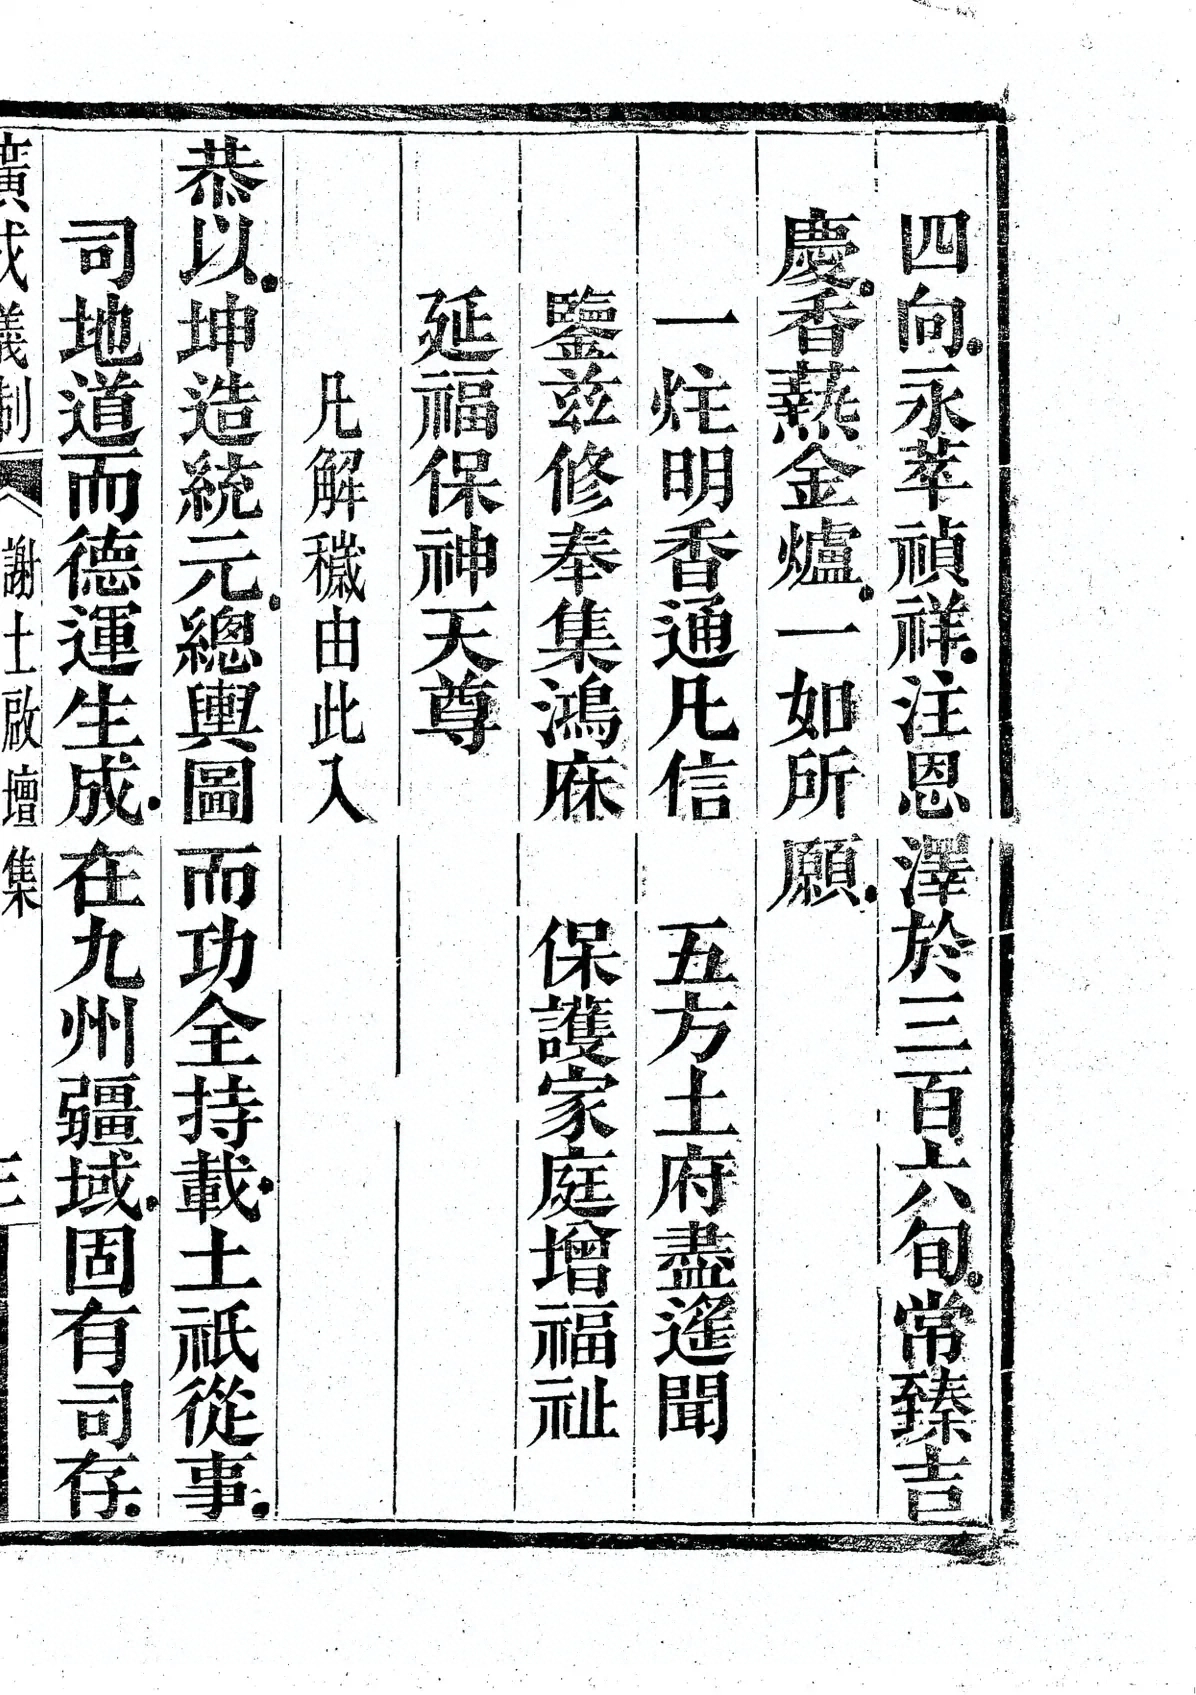 四向永萃禎祥注恩澤於三百六旬常臻吉
慶香爇金爐一如所願
一炷明香通凡信　五方土府盡遙聞
鑒茲修奉集鴻庥　保護家庭增福祉
延福保神天尊
凡解穢由此入
恭以坤造統元總輿圖而功全持載土祇從事
司地道而德運生成在九州疆域固有司存
廣成儀制　謝土啟壇集　三